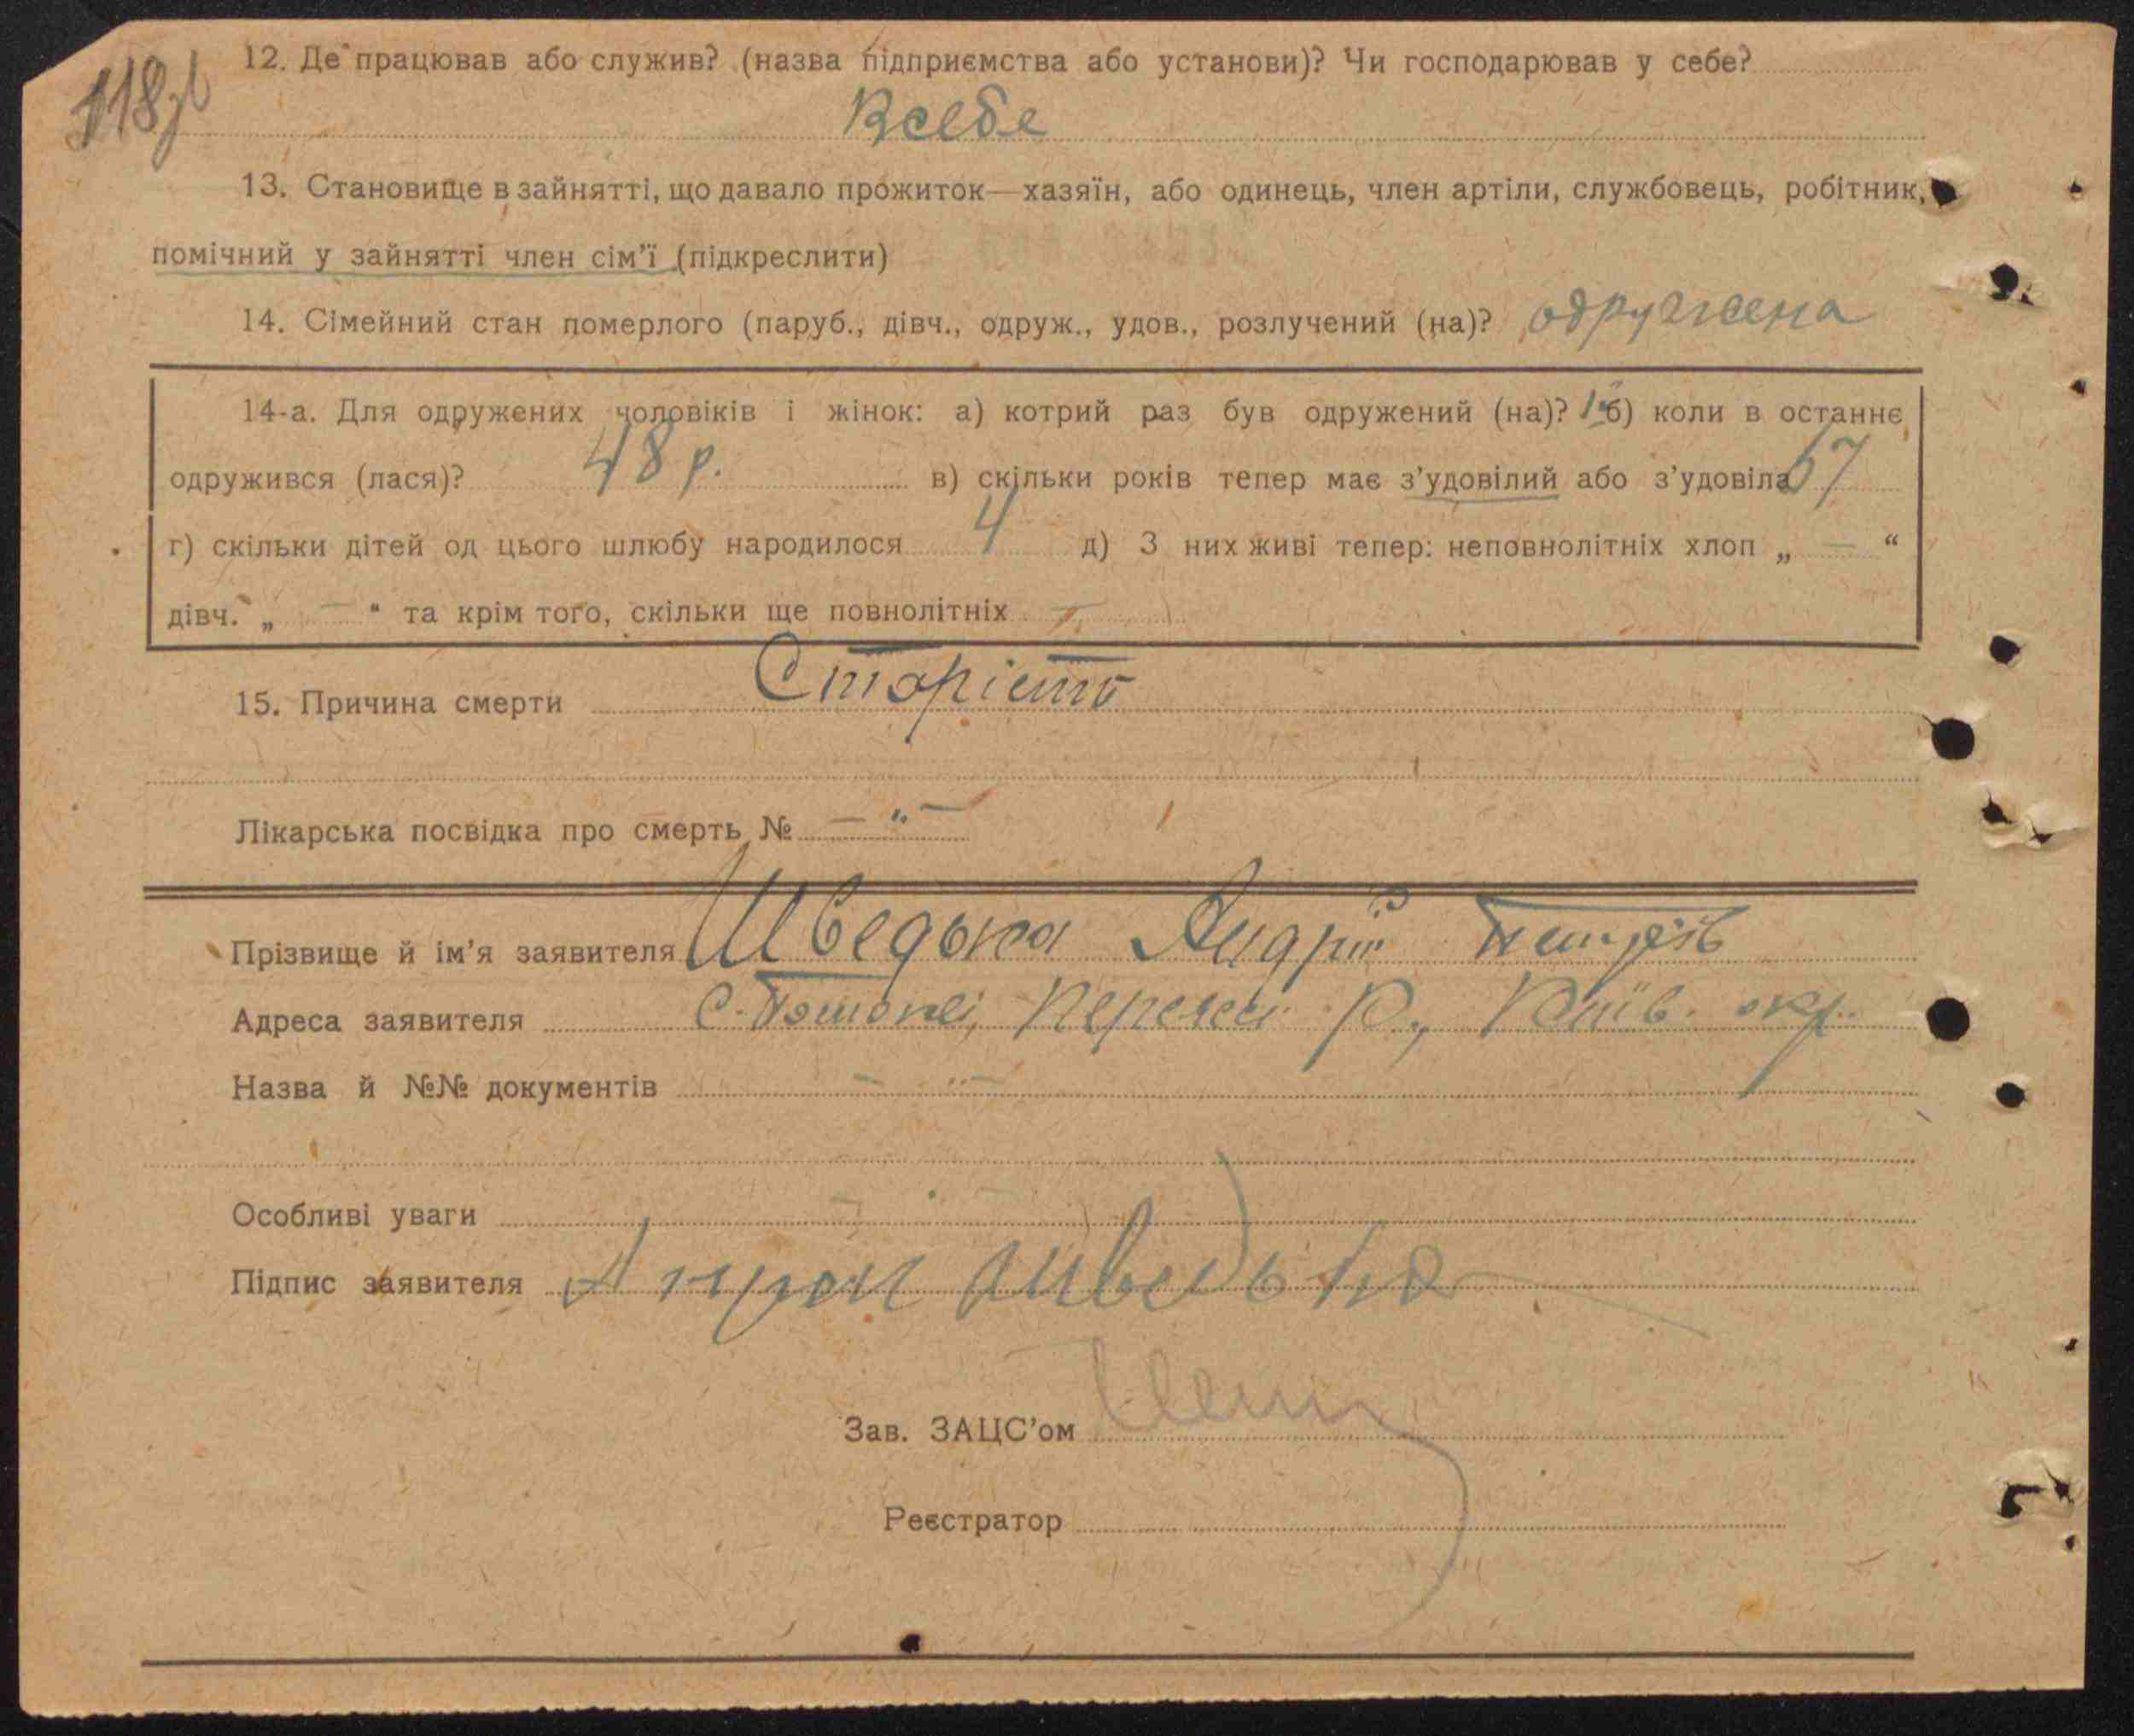 118зв
12. Де працював або служив? (назва підприємства або установи)? Чи господарював у себе?
Всебе
13. Становище в зайнятті, що давало прожиток—хазяїн, або одинець, член артіли, службовець, робітник,
помічний у зайнятті член сім'ї (підкреслити)
14. Сімейний стан померлого (паруб., дівч., одруж., удов., розлучений (на)? одружена
14-а. Для одружених чоловіків і жінок: а) котрий раз був одружений (на)? 1 б) коли в останнє
одружився (лася)? 48 р. в) скільки років тепер має з'удовілий або з'удовіла 67
г) скільки дітей од цього шлюбу народилося 4 д) З них живі тепер: неповнолітніх хлоп „ — “
дівч. „ — “ та крім того, скільки ще повнолітніх —
15. Причина смерти Старість
Лікарська посвідка про смерть № — „ —
Прізвище й ім'я заявителя Шведька Андрій
Адреса заявителя с. Перегон. р., Київ. окр.
Назва й №№ документів — „ —
Особливі уваги — „ —
Підпис заявителя Андрей Шведька
Зав. ЗАЦС'ом
Реєстратор